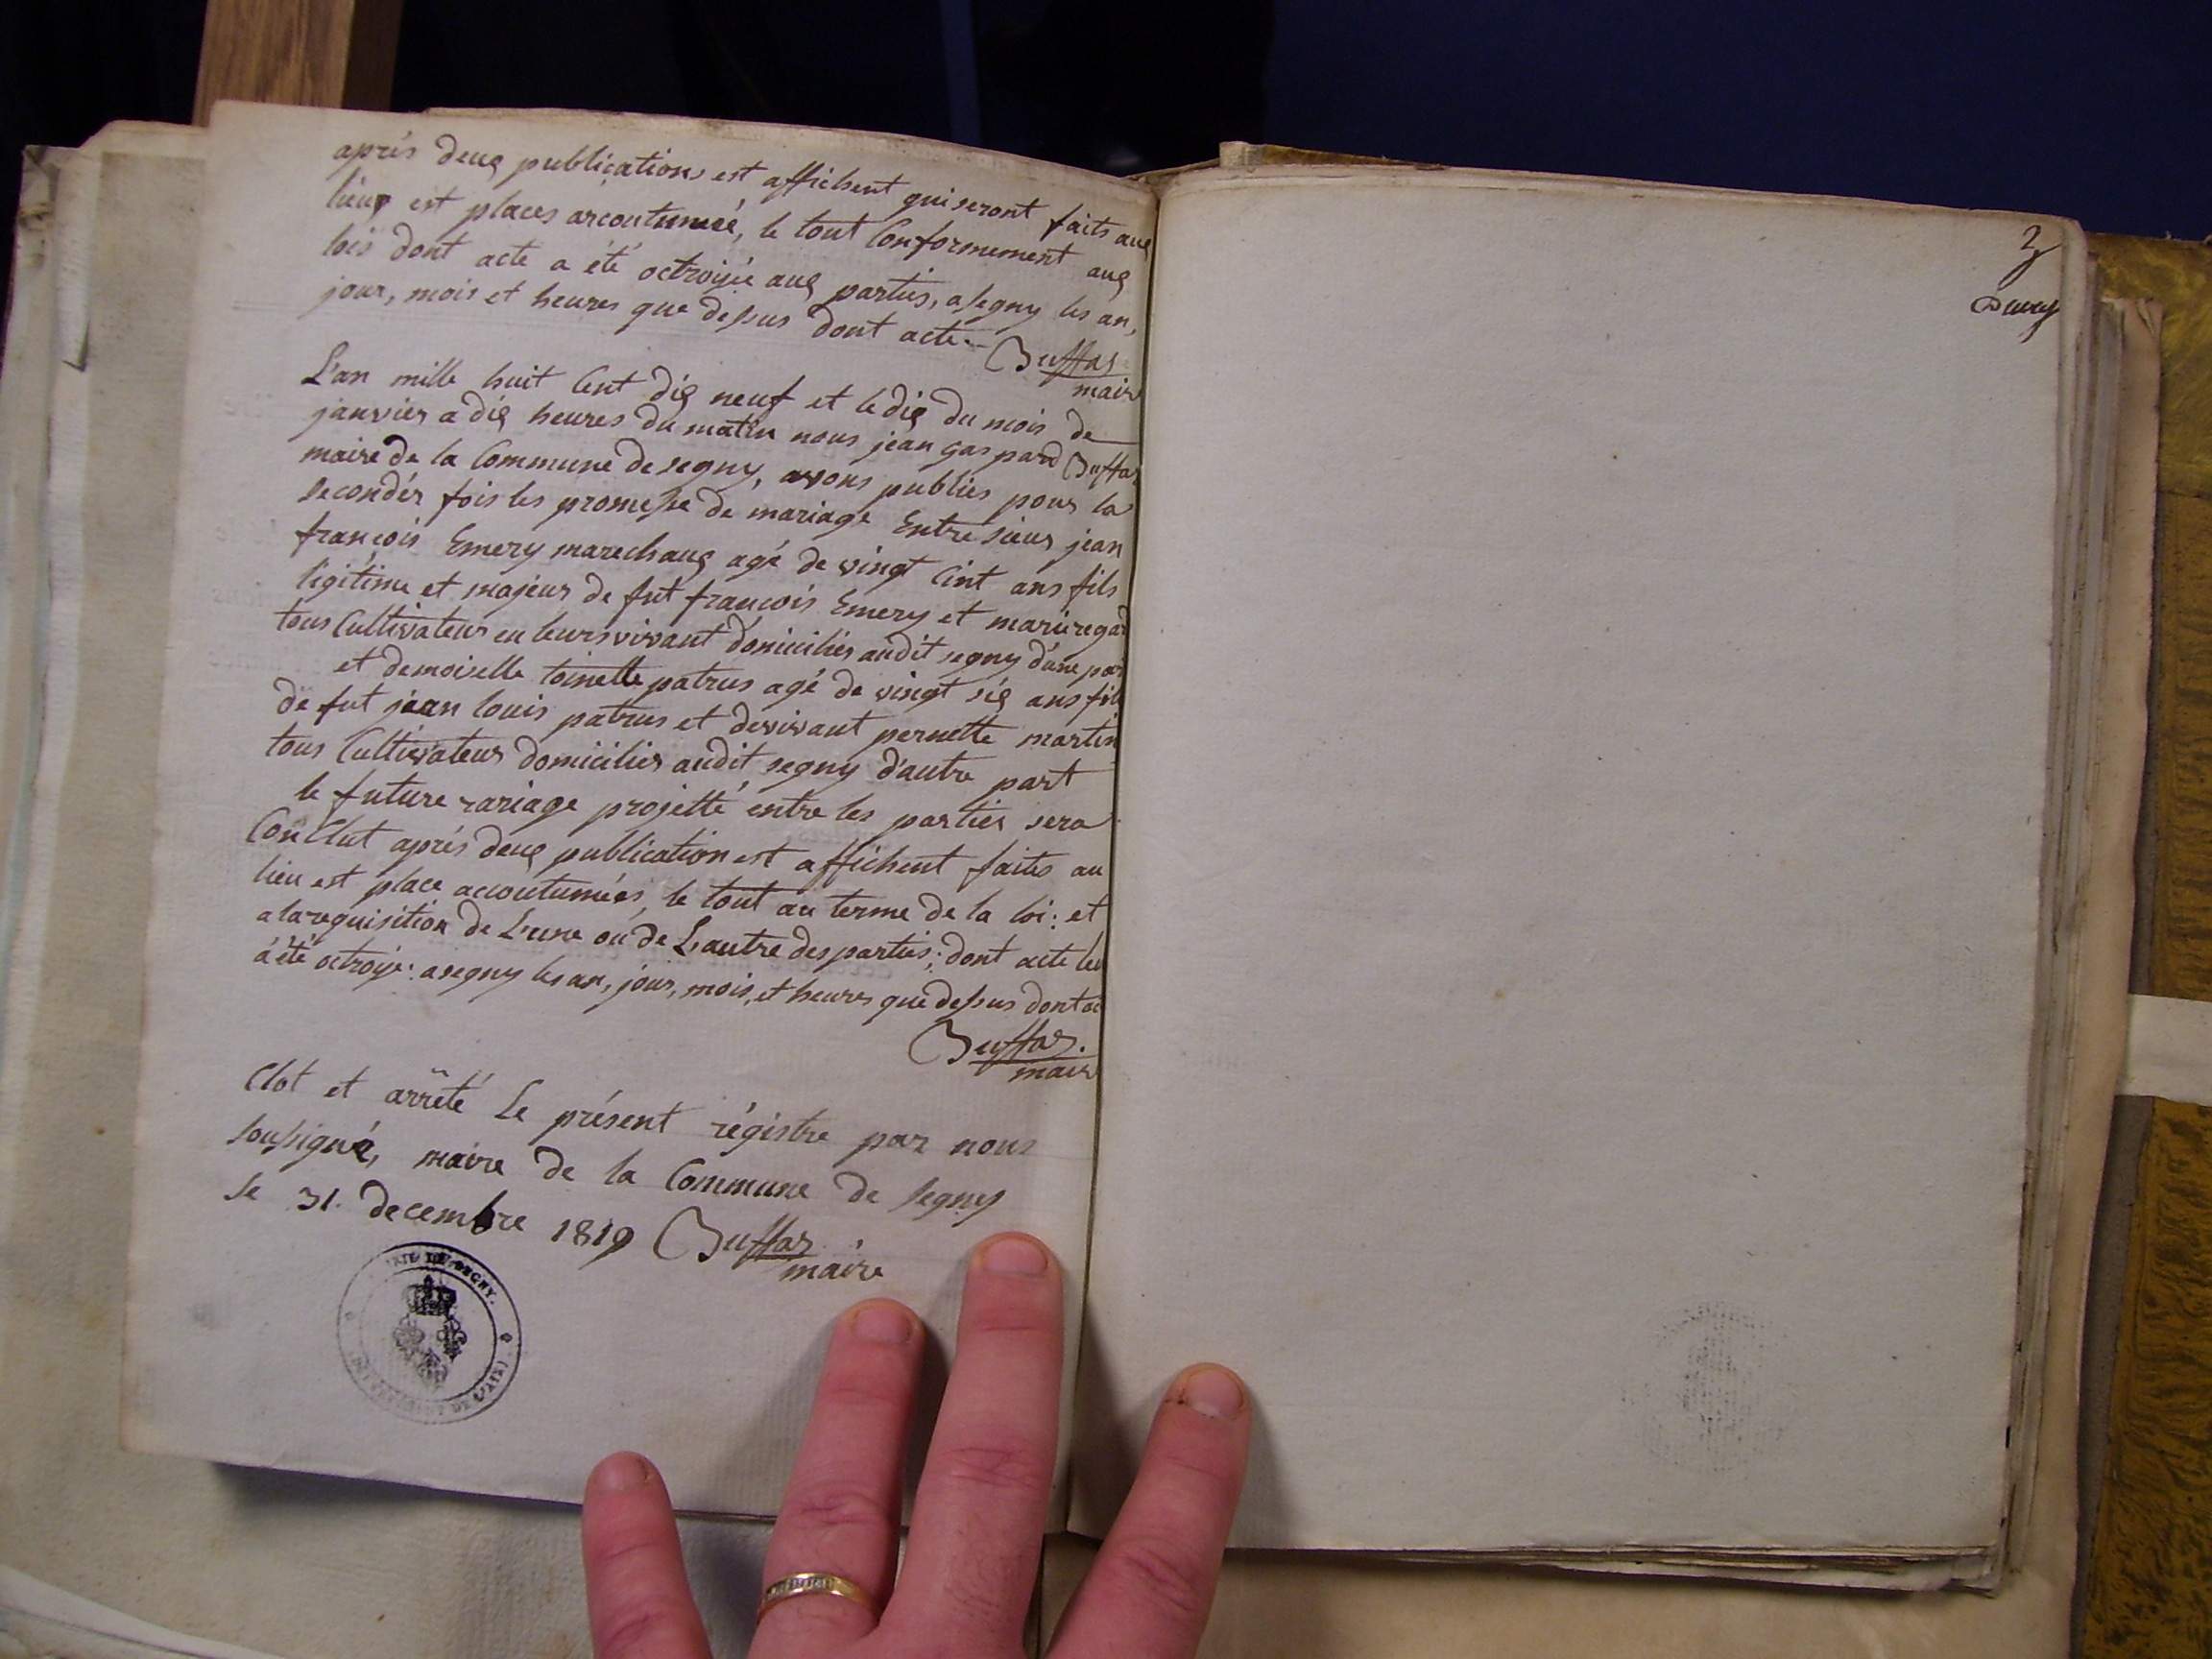 après deux publications est affichent qui seront faits aux
lieux est places arcoutumeé, le tout Conformement aux
lois dont acte a été octroyée aux parties, a segny les an,
jour, mois et heures que dessus dont acte.
Buffaz
maire
L'an mille huit Cent dix neuf et le dix du mois de
janvier a dix heures du matin nous jean gaspard Buffaz
maire de la Commune de segny, avons publiés pour la
seconder fois les promesse de mariage Entre sieur jean
françois Emery marechaux agé de vingt Cint ans fils
légitime et majeur de fut françois Emery et marie regad
tous Cultivateur en leurs vivant domiciliés audit segny d'une par
et demoiselle toinette patrus agé de vingt six ans fill
de fut jean louis patrus et devivant pernette martin
tous Cultivateur domiciliés audit segny d'autre part
le future rariage projetté entre les parties sera
Conclut après deux publication est affichent faites au
lieu est place accoutumées, le tout au terme de la loi: et
a la requisition de L'une ou de L'autre des parties; dont acte leu
a été octroye: a segny les an, jour, mois, et heures que dessus dont ac
Buffaz.
maire
Clot et arrêté Le présent régistre par nous
soussigné, maire de la Commune de segny
le 31. decembre 1819 Buffaz
maire
MAIRIE DE SEGNY.
(DEPARTEMENT DE L'AIN)